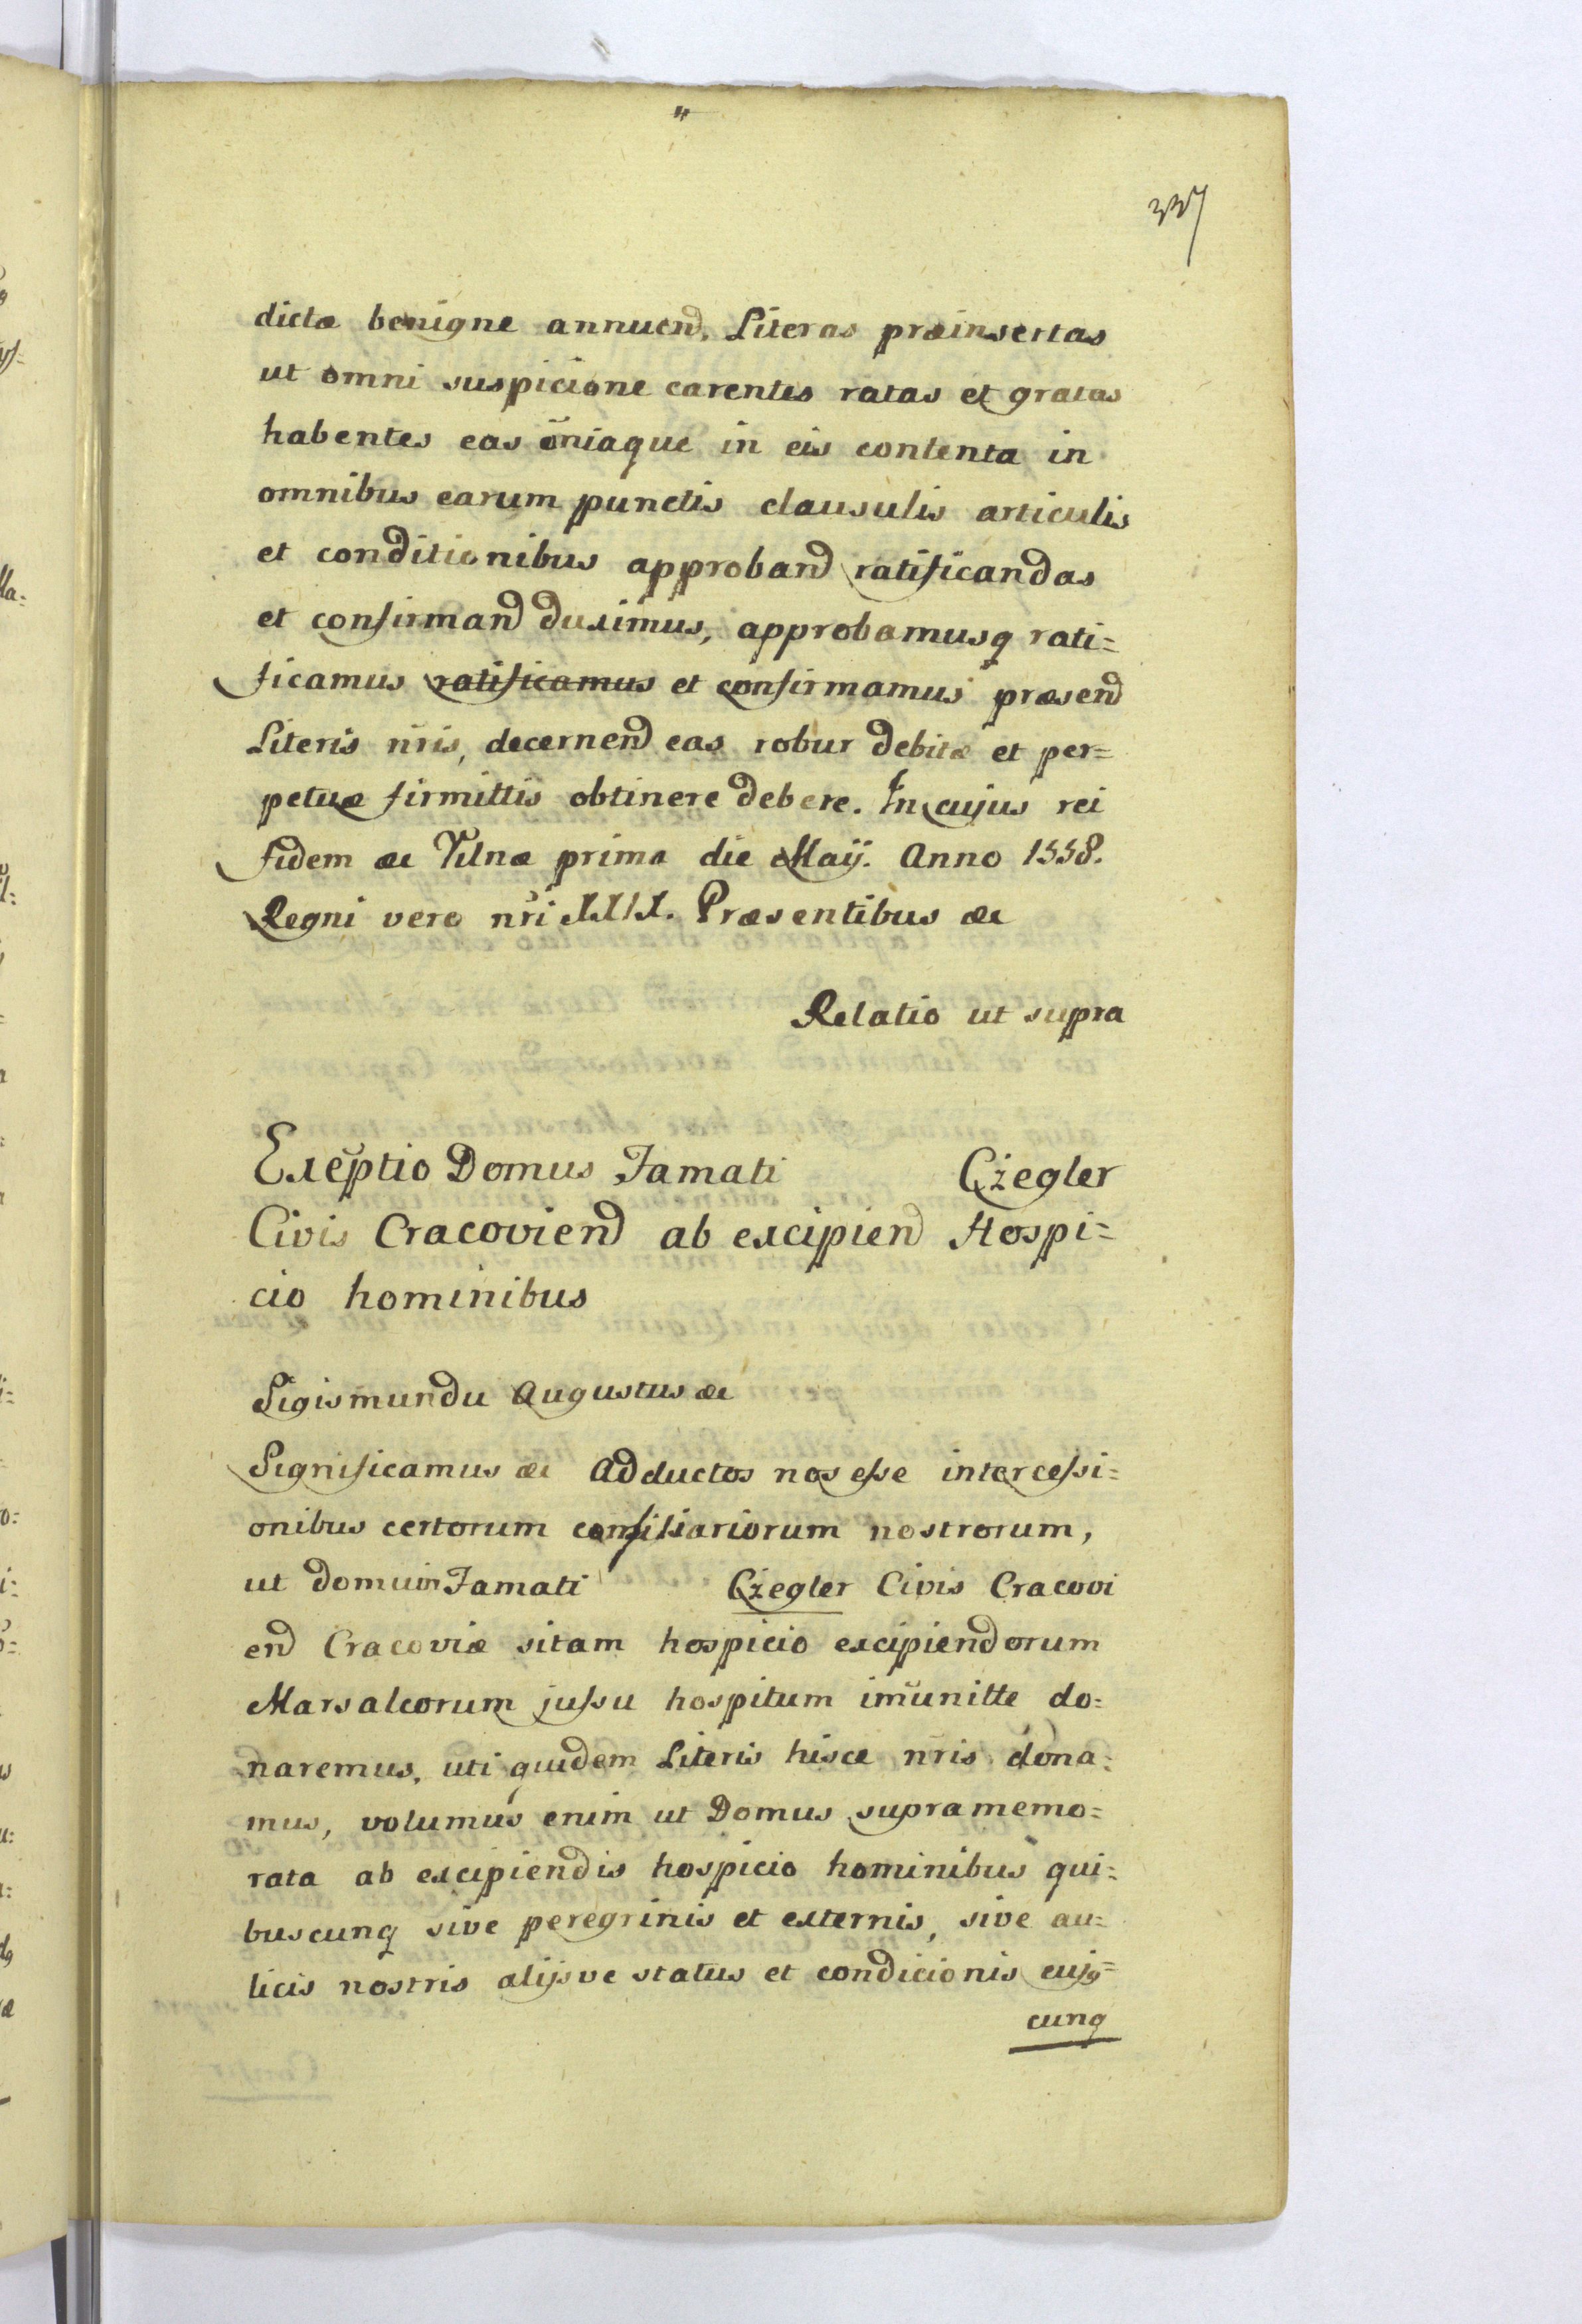 337
dictæ benigne annuend. Literas præinsertas
ut omni suspicione carentes ratas et gratas
habentes eas om̄iaque in eis contenta in
omnibus earum punctis clausulis articulis
et conditionibus approband ratificandas
et confirmand duximus, approbamusq rati=
ficamus ratificamus et confirmamus præsend
Literis nr̄is, decernend eas robur debitæ et per=
petuæ firmittis obtinere debere. In cujus rei
fidem &c Vilnæ prima die Maij. Anno 1558.
Regni vero nr̄i XXIX. Præsentibus &c
Relatio ut supra
Exēptio Domus Famati Cżegler
Civis Cracoviend ab excipiend Hospi=
cio hominibus
Sigismundu Augustus &c
Significamus &c Adductos nos esse intercessi=
onibus certorum consiliariorum nostrorum,
ut domum Famati Cżegler Civis Cracovi
end Cracoviæ sitam hospicio excipiendorum
Marsalcorum jussu hospitum im̄unitte do=
naremus, uti quidem Literis hisce nr̄is dona=
mus, volumus enim ut Domus supra memo=
rata ab excipiendis hospicio hominibus qui=
buscunq sive peregrinis et externis, sive au=
licis nostris alijsve status et condicionis cujq=
cunq